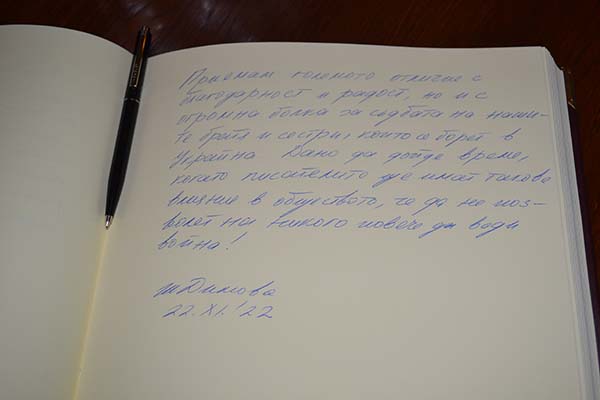 Приемам голямото отличие с
благодарност и радост, но и с
огромна болка за съдбата на наши-
те братя и сестри, които се борят в
Украйна. Дано да дойде време,
когато писателите ще имат такова
влияние в обществото, че да не поз-
волят на никого повече да води
война!
Димова
22.XI.'22